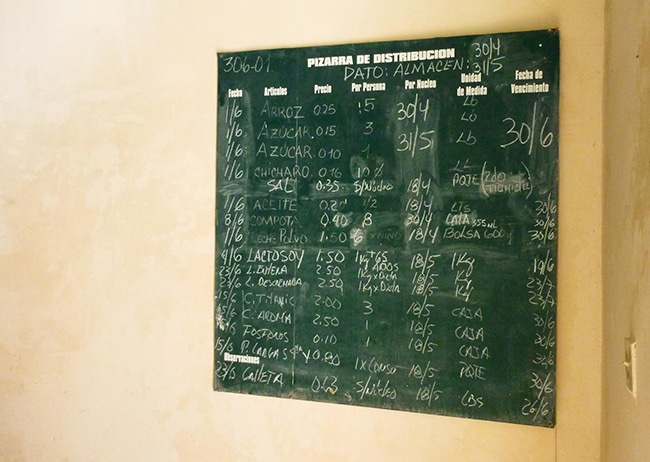 306-01 PIZARRA DE DISTRIBUCION 30/4
DATO: ALMACEN: 31/5
Fecha Artículos Precio Por Persona Por Nucleo Unidad de Medida Fecha de Vencimiento
1/6 ARROZ 0.25 5 30/4 Lb
1/6 AZUCAR 0.15 3 31/5 Lb 30/6
1/6 AZUCAR 0.10 1
1/6 CHICHARO 0.16 10
SAL 0.35 S/Núcleo 18/4 PQTE
1/6 ACEITE 1/2 18/4 LTS 30/6
8/6 COMPOTA 0.40 8 30/4 CAJA 30/6
1/6 LECHE POLVO 1.50 6 18/4 BOLSA 30/6
4/6 LACTOSOY 1.50 1Kg 18/5 1Kg 19/6
23/6 L. ENTERA 2.50 1Kg x Dieta 18/5 Kg 23/7
23/6 L. DESCREMADA 2.50 1Kg x Dieta 18/5 Kg 23/7
15/6 C. TITANIC 2.00 3 18/5 CAJA 30/6
C. AROMA 2.50 1 18/5 CAJA 30/6
FOSFOROS 0.10 1 18/5 CAJA 30/6
15/6 P. 0.80 1 x 18/5 PQTE 30/6
Observaciones
23/6 GALLETA S/Núcleo 18/5 LBS 26/6